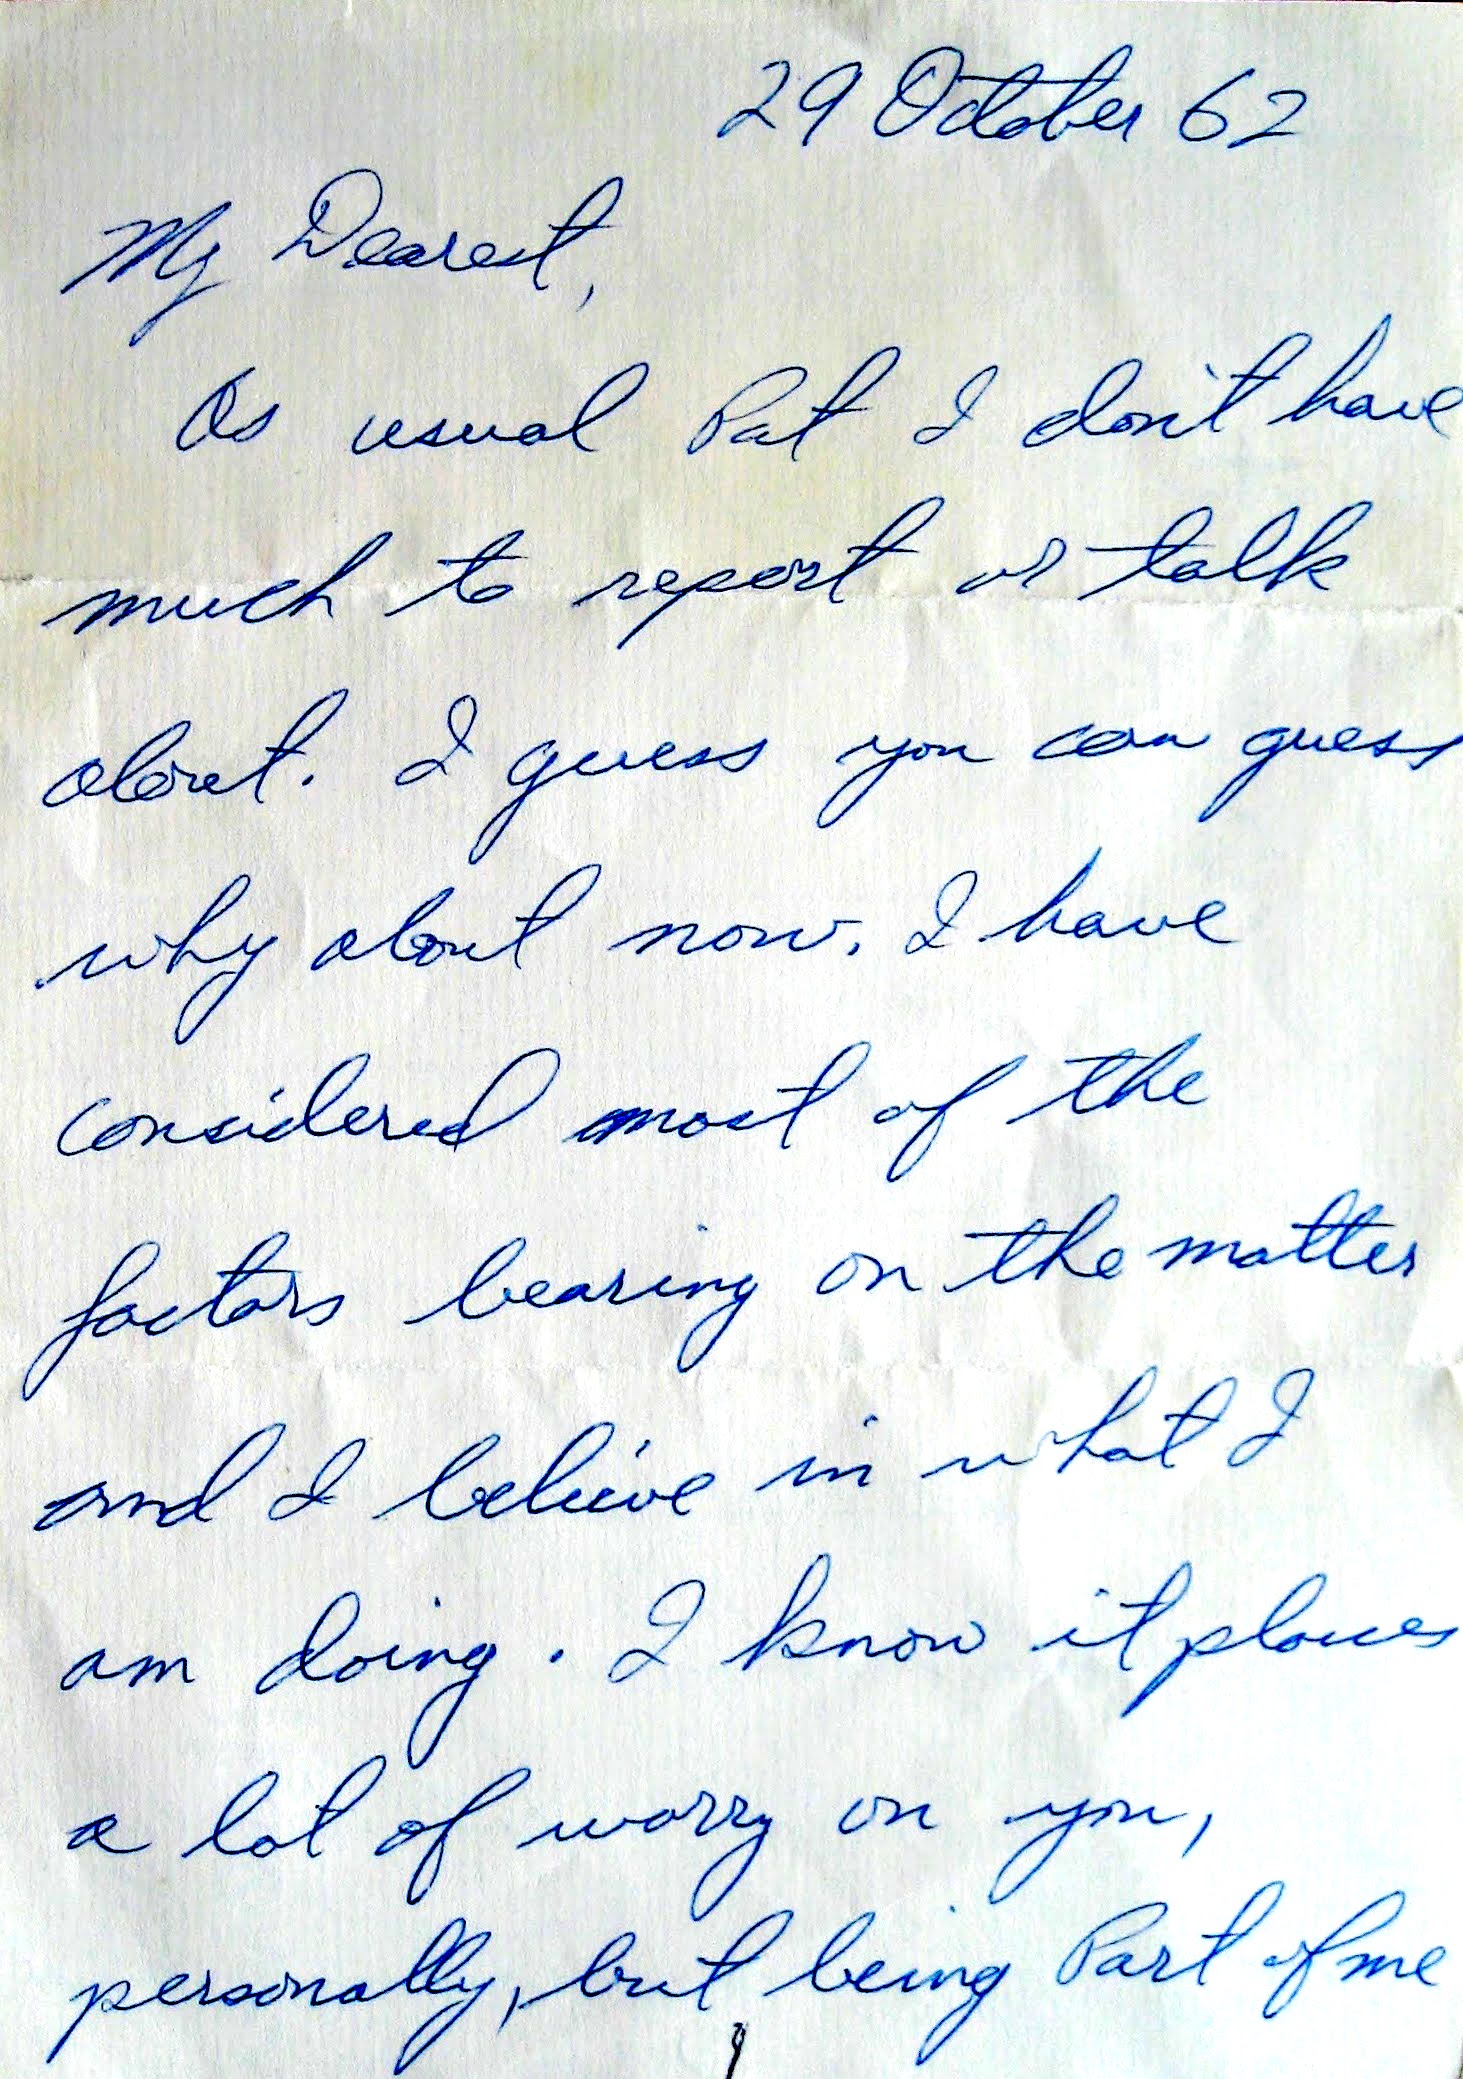 29 October 62
My Dearest,
As usual Pat I don't have
much to report or talk
about. I guess you can guess
why about now. I have
considered most of the
factors bearing on the matter
and I believe in what I
am doing. I know it places
a lot of worry on you,
personally, but being Part of me